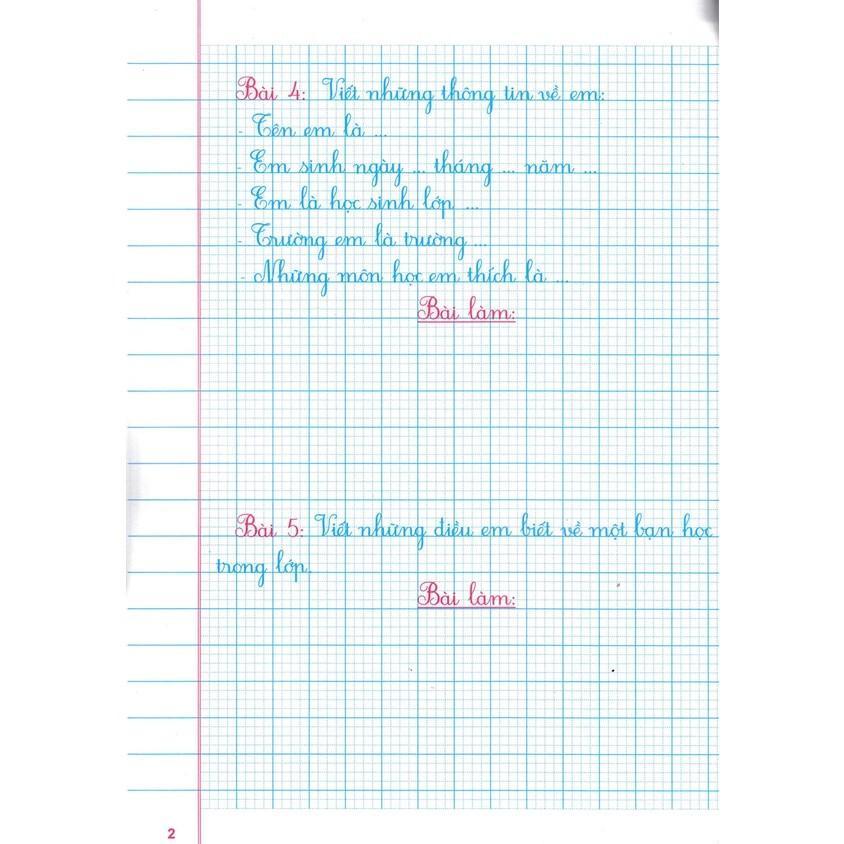 Bài 4: Viết những thông tin về em:
- Tên em là ...
- Em sinh ngày ... tháng ... năm ...
- Em là học sinh lớp ...
- Trường em là trường ...
- Những môn học em thích là ...
Bài làm:
Bài 5: Viết những điều em biết về một bạn học
trong lớp.
Bài làm:
2